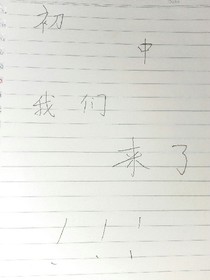 初
中
我们
来了
!!!